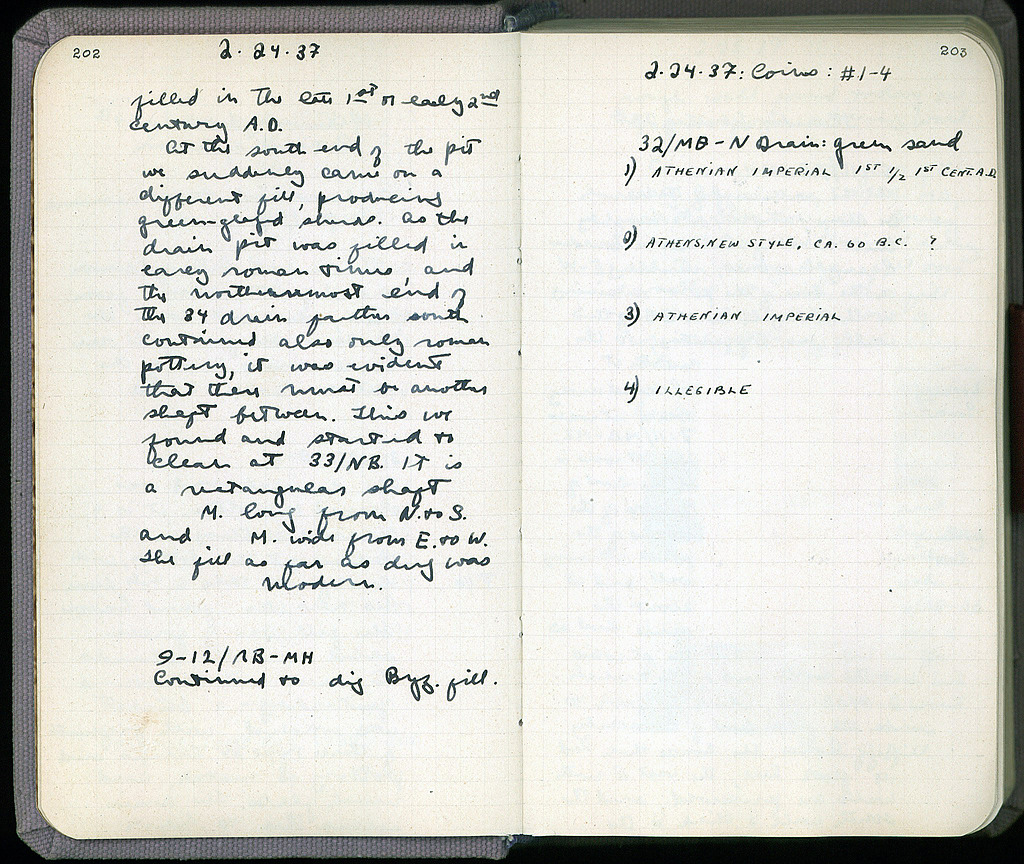 202
2-24-37
filled in the late 1st or early 2nd
century A.D.
At the south end of the pit
we suddenly came on a
different fill, producing
green-glazed sherds. As the
drain pit was filled in
early roman times, and
the northernmost end of
the 34 drain farther south
contained also only roman
pottery, it was evident
that there must be another
shaft between. This we
found and started to
clear at 33/NB. It is
a rectangular shaft
M. long from N. to S.
and M. wide from E. to W.
The fill as far as dug was
modern.
9-12/ -MH
Continued to dig Byz. fill.
203
2-24-37: Coins: #1-4
32/MB-N Drain: green sand
1) ATHENIAN IMPERIAL 1ST 1/2 1ST CENT. A.D.
2) ATHENS, NEW STYLE, CA. 60 B.C. ?
3) ATHENIAN IMPERIAL
4) ILLEGIBLE